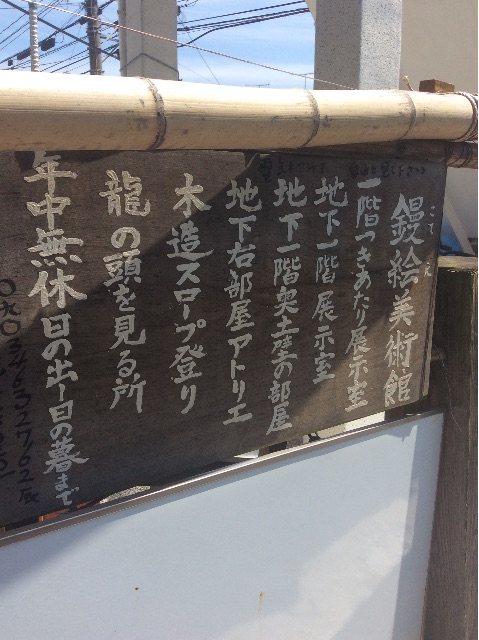 鏝絵美術館
こてえ
一階つきあたり展示室
地下一階展示室
地下一階奥土壁の部屋
地下右部屋アトリエ
木造スロープ登り
龍の頭を見る所
年中無休日の出〜日の暮まで